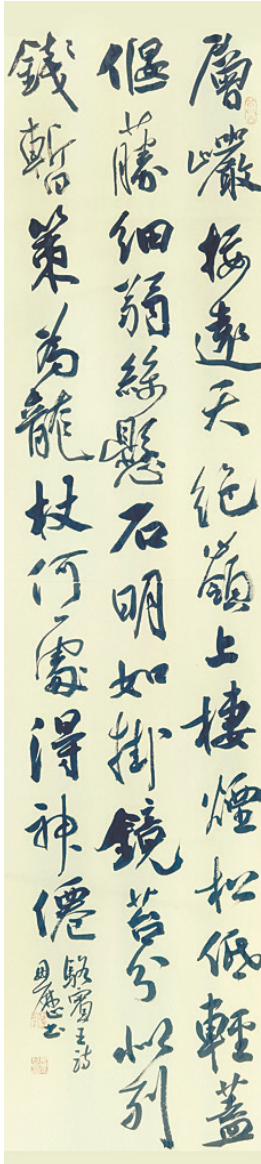 層巖接遠天絕嶺上棲煙松低輕蓋
偃藤細弱絲懸石明如掛鏡苔分似列
錢暫策為龍杖何處得神僊
駱賓王詩